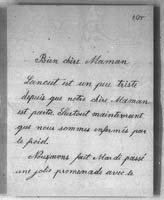 Bien chère Maman
Lancuit est un peu triste
depuis que notre chère Maman
est partie. Surtout maintenant
que nous sommes enfermés par
le froid.
Nous avons fait Mardi passé
une jolie promenade avec le